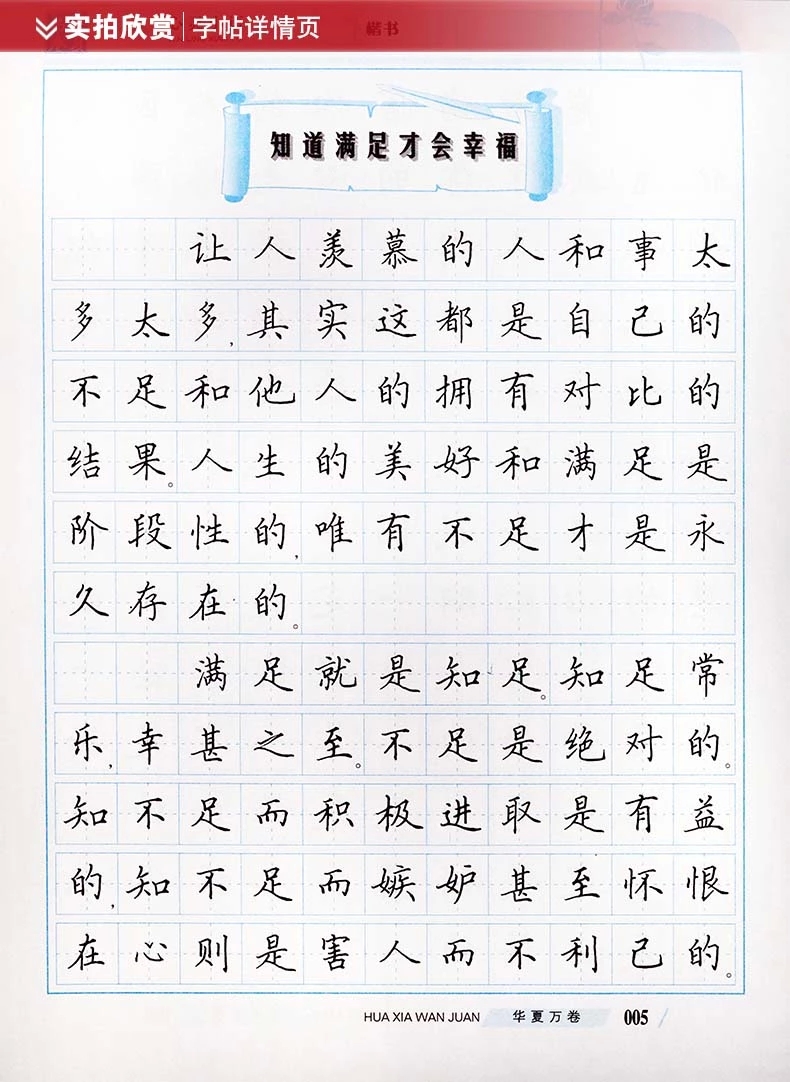 实拍欣赏 字帖详情页
楷书
知道满足才会幸福
让人羡慕的人和事太
多太多,其实这都是自己的
不足和他人的拥有对比的
结果。人生的美好和满足是
阶段性的,唯有不足才是永
久存在的。
满足就是知足。知足常
乐,幸甚之至。不足是绝对的。
知不足而积极进取是有益
的,知不足而嫉妒甚至怀恨
在心则是害人而不利己的。
HUA XIA WAN JUAN 华夏万卷 005